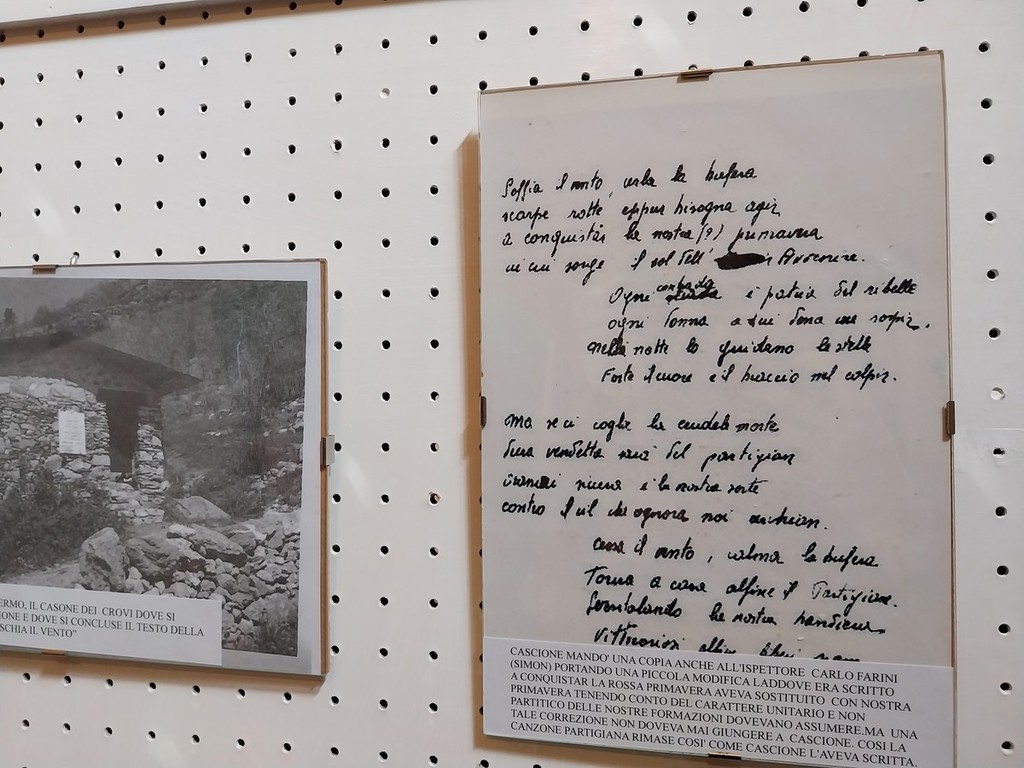 ERMO, IL CASONE DEI CROVI DOVE SI
IONE E DOVE SI CONCLUSE IL TESTO DELLA
SCHIA IL VENTO"
Soffia il vento, urla la bufera
scarpe rotte eppur bisogna agir
a conquistar la nostra (?) primavera
in cui sorge il sol dell' Avvenire.
Ogni contrada è patria del ribelle
ogni donna a lui dona un sospir,
nella notte lo guidano le stelle
Forte il cuore e il braccio nel colpir.
Ma se ci coglie la crudele morte
dura vendetta sarà del partigian
ormai sicura è la nostra sorte
contro il vil che ognora noi
Cessa il vento, calma la bufera
Torna a casa alfine il Partigiano.
Sventolando la nostra bandiera
Vittoriosi alfin liberi siam
CASCIONE MANDO' UNA COPIA ANCHE ALL'ISPETTORE CARLO FARINI
(SIMON) PORTANDO UNA PICCOLA MODIFICA LADDOVE ERA SCRITTO
A CONQUISTAR LA ROSSA PRIMAVERA AVEVA SOSTITUITO CON NOSTRA
PRIMAVERA TENENDO CONTO DEL CARATTERE UNITARIO E NON
PARTITICO DELLE NOSTRE FORMAZIONI DOVEVANO ASSUMERE.MA UNA
TALE CORREZIONE NON DOVEVA MAI GIUNGERE A CASCIONE. COSI LA
CANZONE PARTIGIANA RIMASE COSI' COME CASCIONE L'AVEVA SCRITTA.